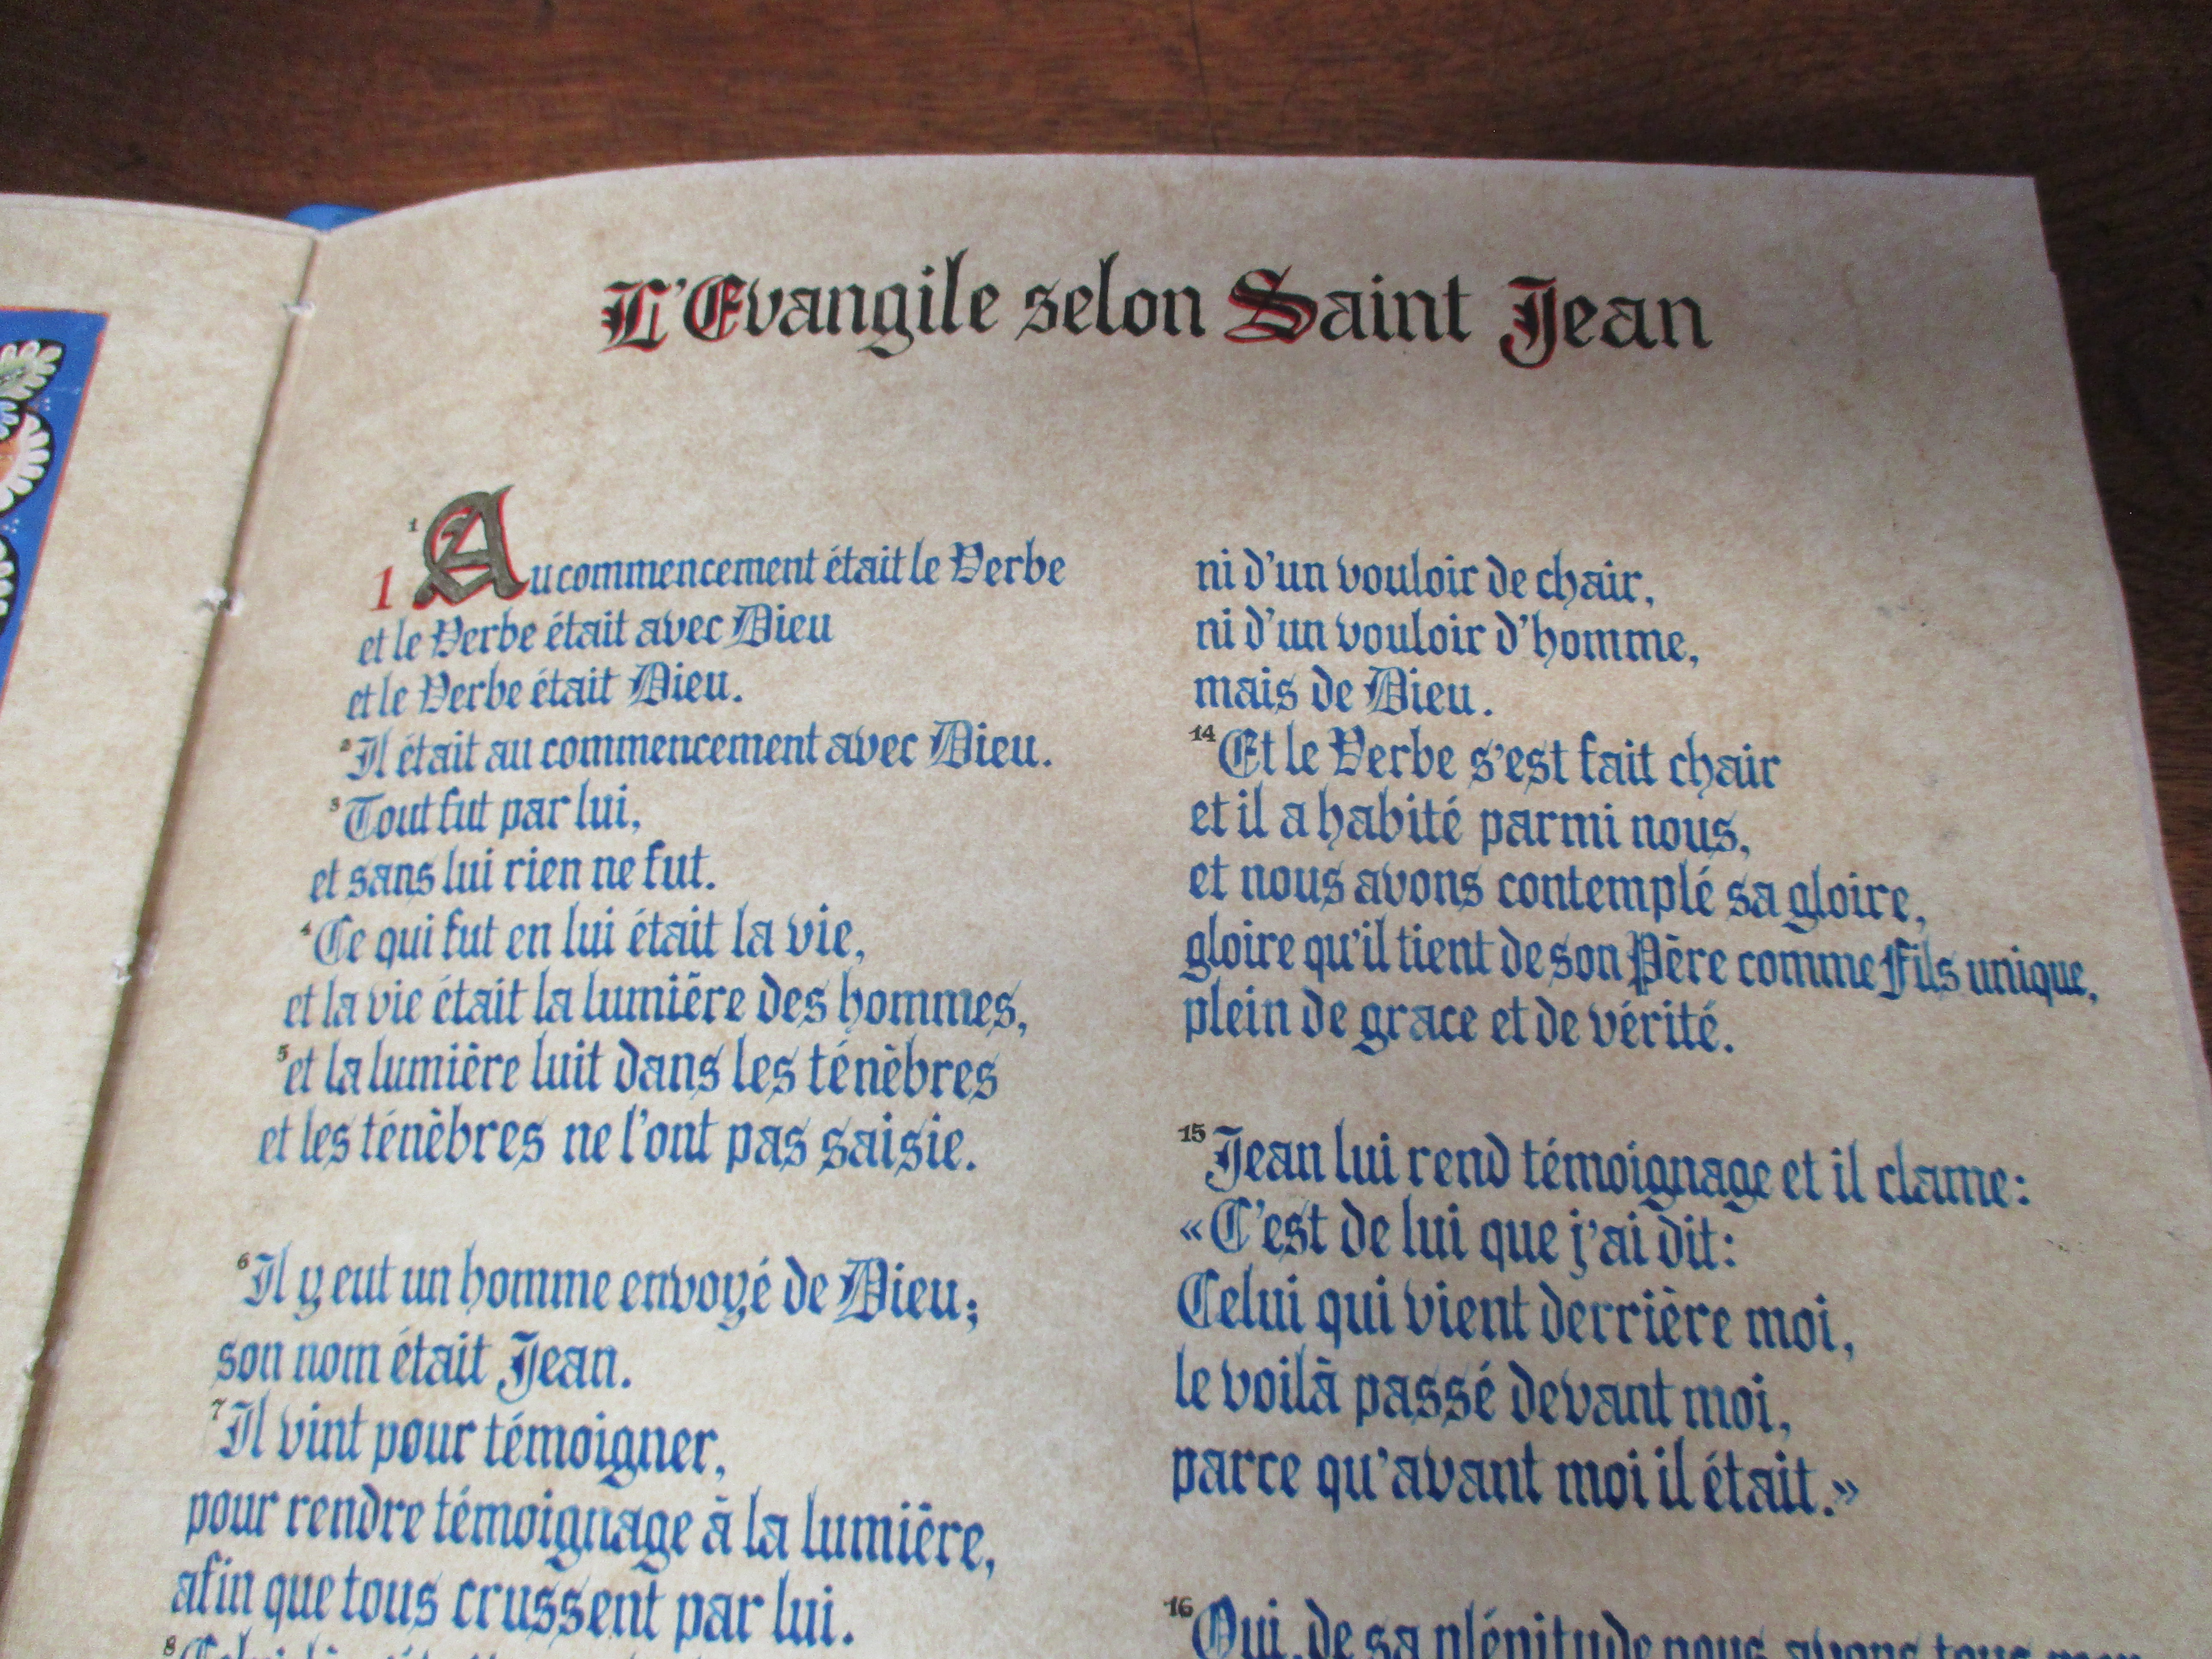 L'Evangile selon Saint Jean
1 1 Au commencement était le Verbe
et le Verbe était avec Dieu
et le Verbe était Dieu.
2 Il était au commencement avec Dieu.
3 Tout fut par lui,
et sans lui rien ne fut.
4 Ce qui fut en lui était la vie,
et la vie était la lumière des hommes,
5 et la lumière luit dans les ténèbres
et les ténèbres ne l'ont pas saisie.
6 Il y eut un homme envoyé de Dieu;
son nom était Jean.
7 Il vint pour témoigner,
pour rendre témoignage à la lumière,
afin que tous crussent par lui.
8
ni d'un vouloir de chair,
ni d'un vouloir d'homme,
mais de Dieu.
14 Et le Verbe s'est fait chair
et il a habité parmi nous,
et nous avons contemplé sa gloire,
gloire qu'il tient de son Père comme Fils unique,
plein de grace et de vérité.
15 Jean lui rend témoignage et il clame:
«C'est de lui que j'ai dit:
Celui qui vient derrière moi,
le voilà passé devant moi,
parce qu'avant moi il était.»
16 Oui, de sa plénitude nous avons tous